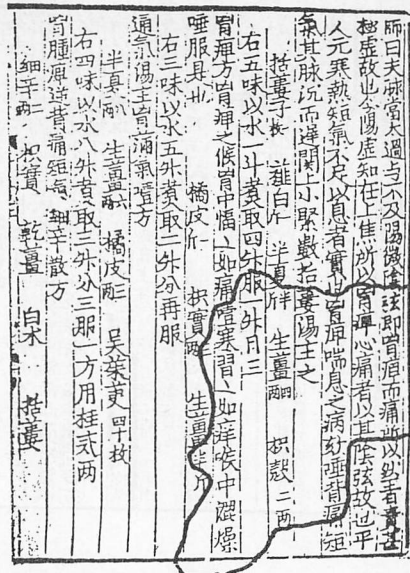 師曰夫脉當太過与不及陽微陰弦即胷痺而痛所以然者責其
極虛故也今陽虛知在上焦所以胷痺心痛者以其陰弦故也平
人无寒熱短氣不足以息者實也胷痺喘息之病欬唾背痛短
氣其脉沉而遲關上小緊數括蔞湯主之
括蔞子枚 薤白斤 半夏 生薑四兩 枳殼二两
右五味以水一斗煑取四升服一升日三
胷痺方胷痺之候胷中愊〻如痛噎塞習〻如痒喉中澀燥
唾 橘皮 枳實 生薑半斤
右三味以水五升煑取二升分再服
通氣湯主胷滿氣噎方
半夏 生薑 橘皮 吴茱萸四十枚
右四味以水八升煑取三升分三服一方用桂弍两
背痛短氣細辛散方
細辛 枳實 乾薑 白术 括蔞